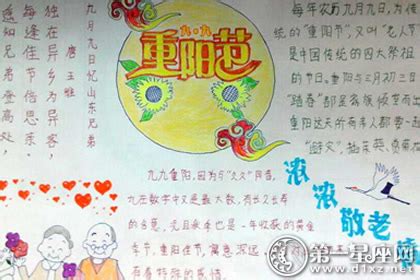 九月九日忆山东兄弟
唐 王维
独在异乡为异客,
每逢佳节倍思亲
遥知兄弟登高处,
九·九
重阳节
每年农历九月九日,为传
统的“重阳节”,又叫“老人节”
是中国传统的四大祭祖
的节日。重阳与三月初三日
“踏春”都是家族倾室而出
重阳这天所有亲人都要一起
“避灾”,插茱萸、赏菊
九九重阳,因为与“久久”同音,
九在数字中又是最大数,有长久长寿
的含意,况且秋季也是一年收获的黄金
季节,重阳佳节,寓意深远,
有着特殊的感情。
浓浓敬老情
第一星座网
www.d1xz.net